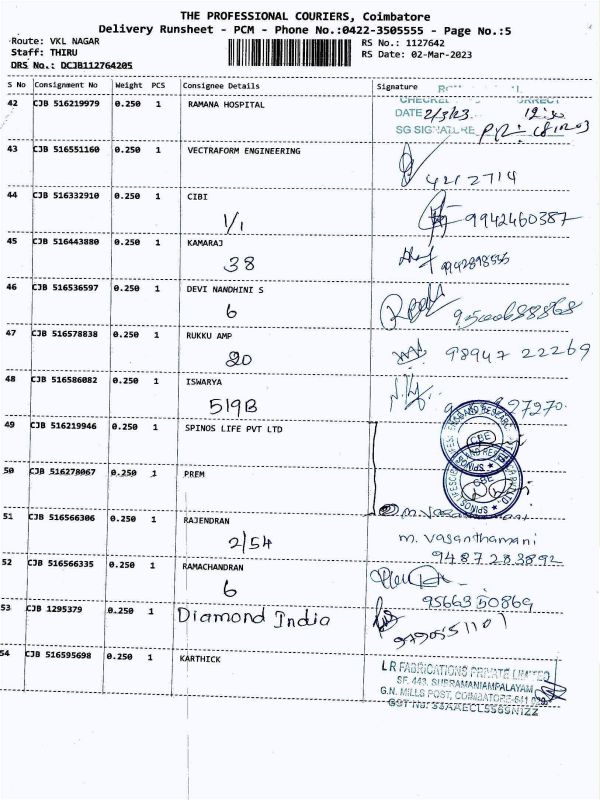 THE PROFESSIONAL COURIERS, Coimbatore
Delivery Runsheet - PCM - Phone No.:0422-3505555 - Page No.:5
Route: VKL NAGAR
Staff: THIRU
DRS No.: DCJB112764205
RS No.: 1127642
RS Date: 02-Mar-2023
S No Consignment No Weight PCS Consignee Details Signature
42 CJB 516219979 0.250 1 RAMANA HOSPITAL
DATE 2/3/23
SG SIGNATURE
43 CJB 516551160 0.250 1 VECTRAFORM ENGINEERING
4212714
44 CJB 516332910 0.250 1 CIBI
1/1 9942460387
45 CJB 516443880 0.250 1 KAMARAJ
38
46 CJB 516536597 0.250 1 DEVI NANDHINI S
6
47 CJB 516578838 0.250 1 RUKKU AMP
20 98947 22269
48 CJB 516586082 0.250 1 ISWARYA
519B
49 CJB 516219946 0.250 1 SPINOS LIFE PVT LTD
50 CJB 516278067 0.250 1 PREM
51 CJB 516566306 0.250 1 RAJENDRAN
2/54 m. vasanthamani
9487283892
52 CJB 516566335 0.250 1 RAMACHANDRAN
6 9566350869
53 CJB 1295379 0.250 1 Diamond India
54 CJB 516595698 0.250 1 KARTHICK
L R FABRICATIONS PRIVATE LIMITED
SF. 443, SUBRAMANIAMPALAYAM
G.N. MILLS POST, COIMBATORE-641 029